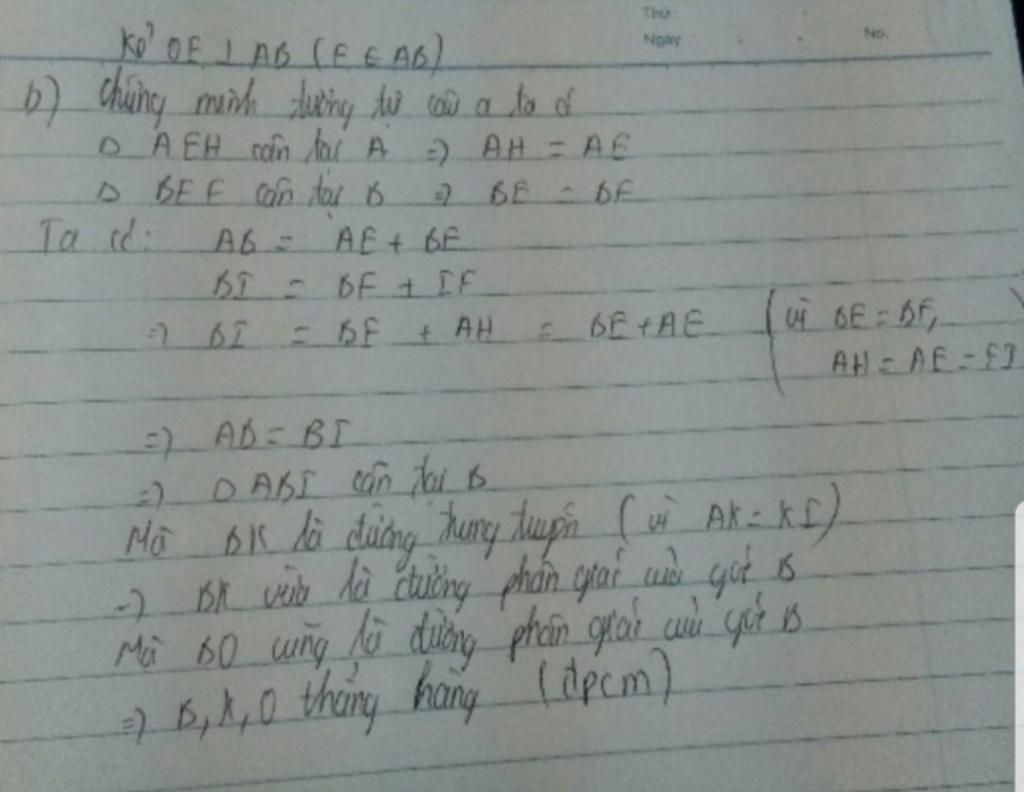 Thứ
Ngày . . No.
Kẻ OE ⊥ AB (E ∈ AB)
b) Chứng minh tương tự câu a ta có
Δ AEH cân tại A => AH = AE
Δ BEF cân tại B => BE = BF
Ta có: AB = AE + BE
BI = BF + IF
=> BI = BF + AH = BE + AE (vì BE = BF,
AH = AE = FI)
=> AB = BI
=> Δ ABI cân tại B
Mà BK là đường trung tuyến (vì AK = KI)
=> BK vừa là đường phân giác của góc B
Mà BO cũng là đường phân giác của góc B
=> B, K, O thẳng hàng (đpcm)